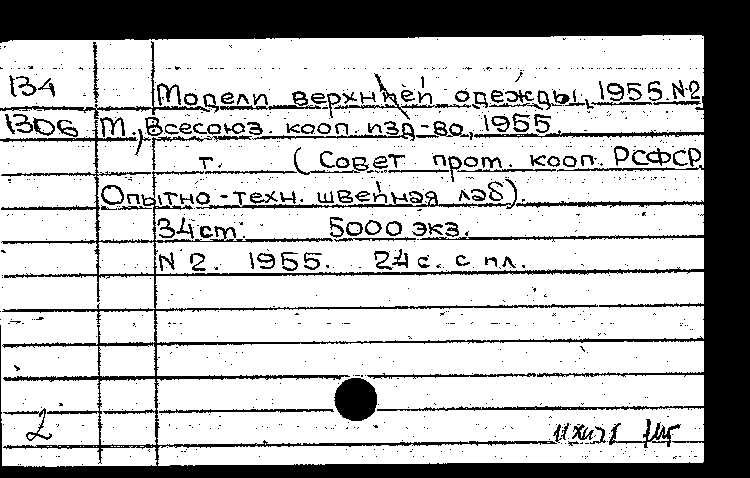 134 Модели верхней одежды, 1955 №2
1306 М., Всесоюз. кооп. изд-во, 1955.
т. (Совет пром. кооп. РСФСР
Опытно-техн. швейная лаб).
34 cm. 5000 экз.
N 2. 1955. 24 с. с ил.
2